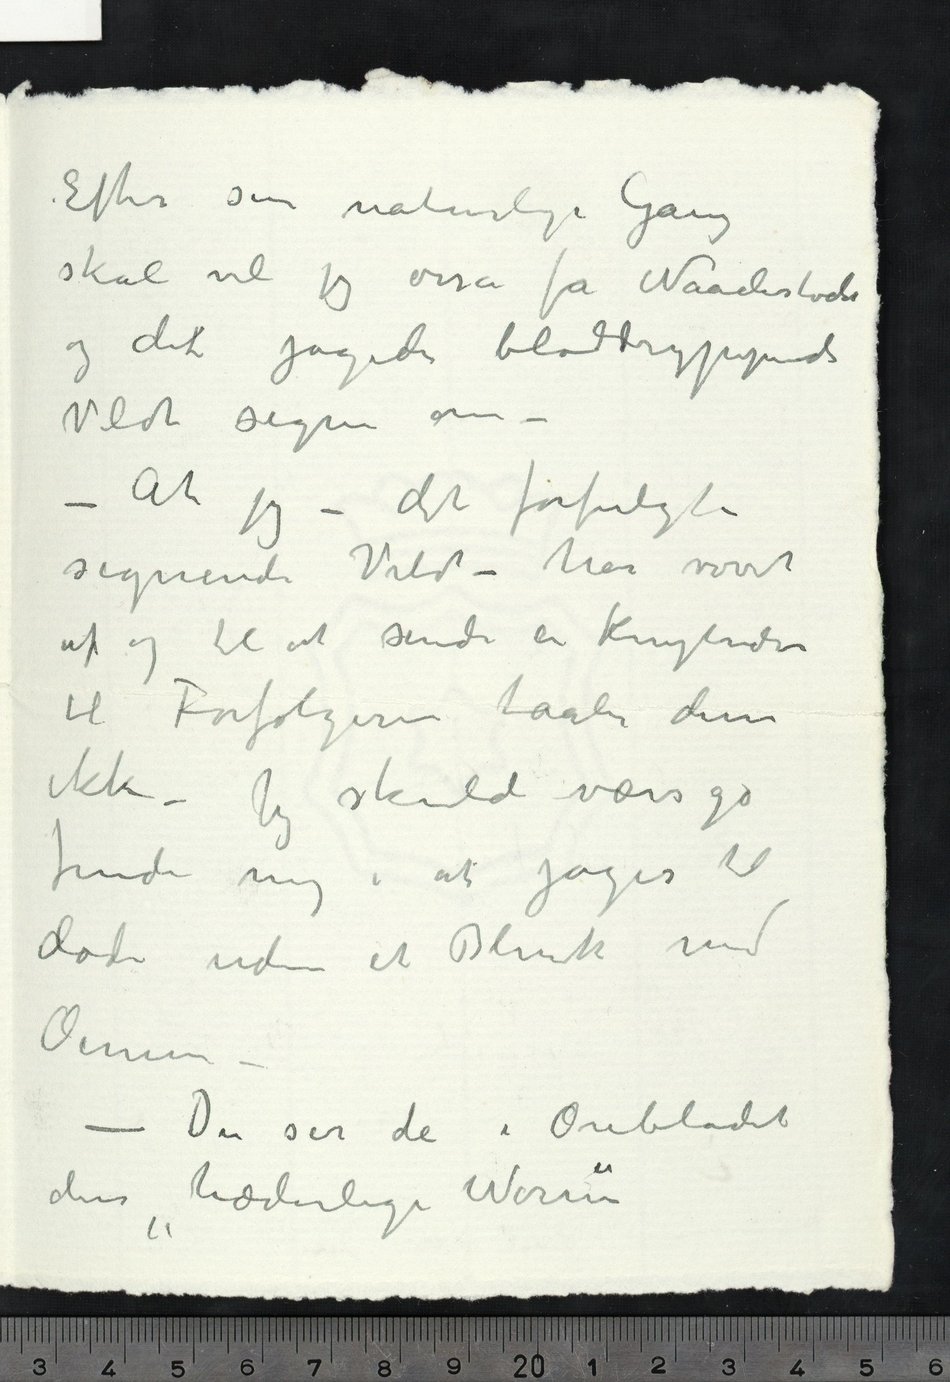 Efter sin naturlige Gang
skal vel jeg osså få Naadestødet
og det jagede bloddryppende
Vildt segne om –
– At jeg – det forfulgte
segnende Vildt – har vovet
af og til at sende en
til Forfølgerne taaler den
ikke – Jeg skulde værs go
finde mig i at jages til
døde uden et Blink med
Øinene –
— Du ser de i Ørebladet
den „hæderlige Worm"
3 4 5 6 7 8 9 20 1 2 3 4 5 6